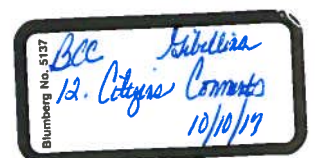 Blumberg No. 5137
BCC Gibellina
12. Citizens Comments
10/10/17